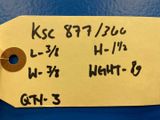 KSC 877/366
L-3/8 H-1 1/2
W-7/8 WGHT-8g
QTY-3